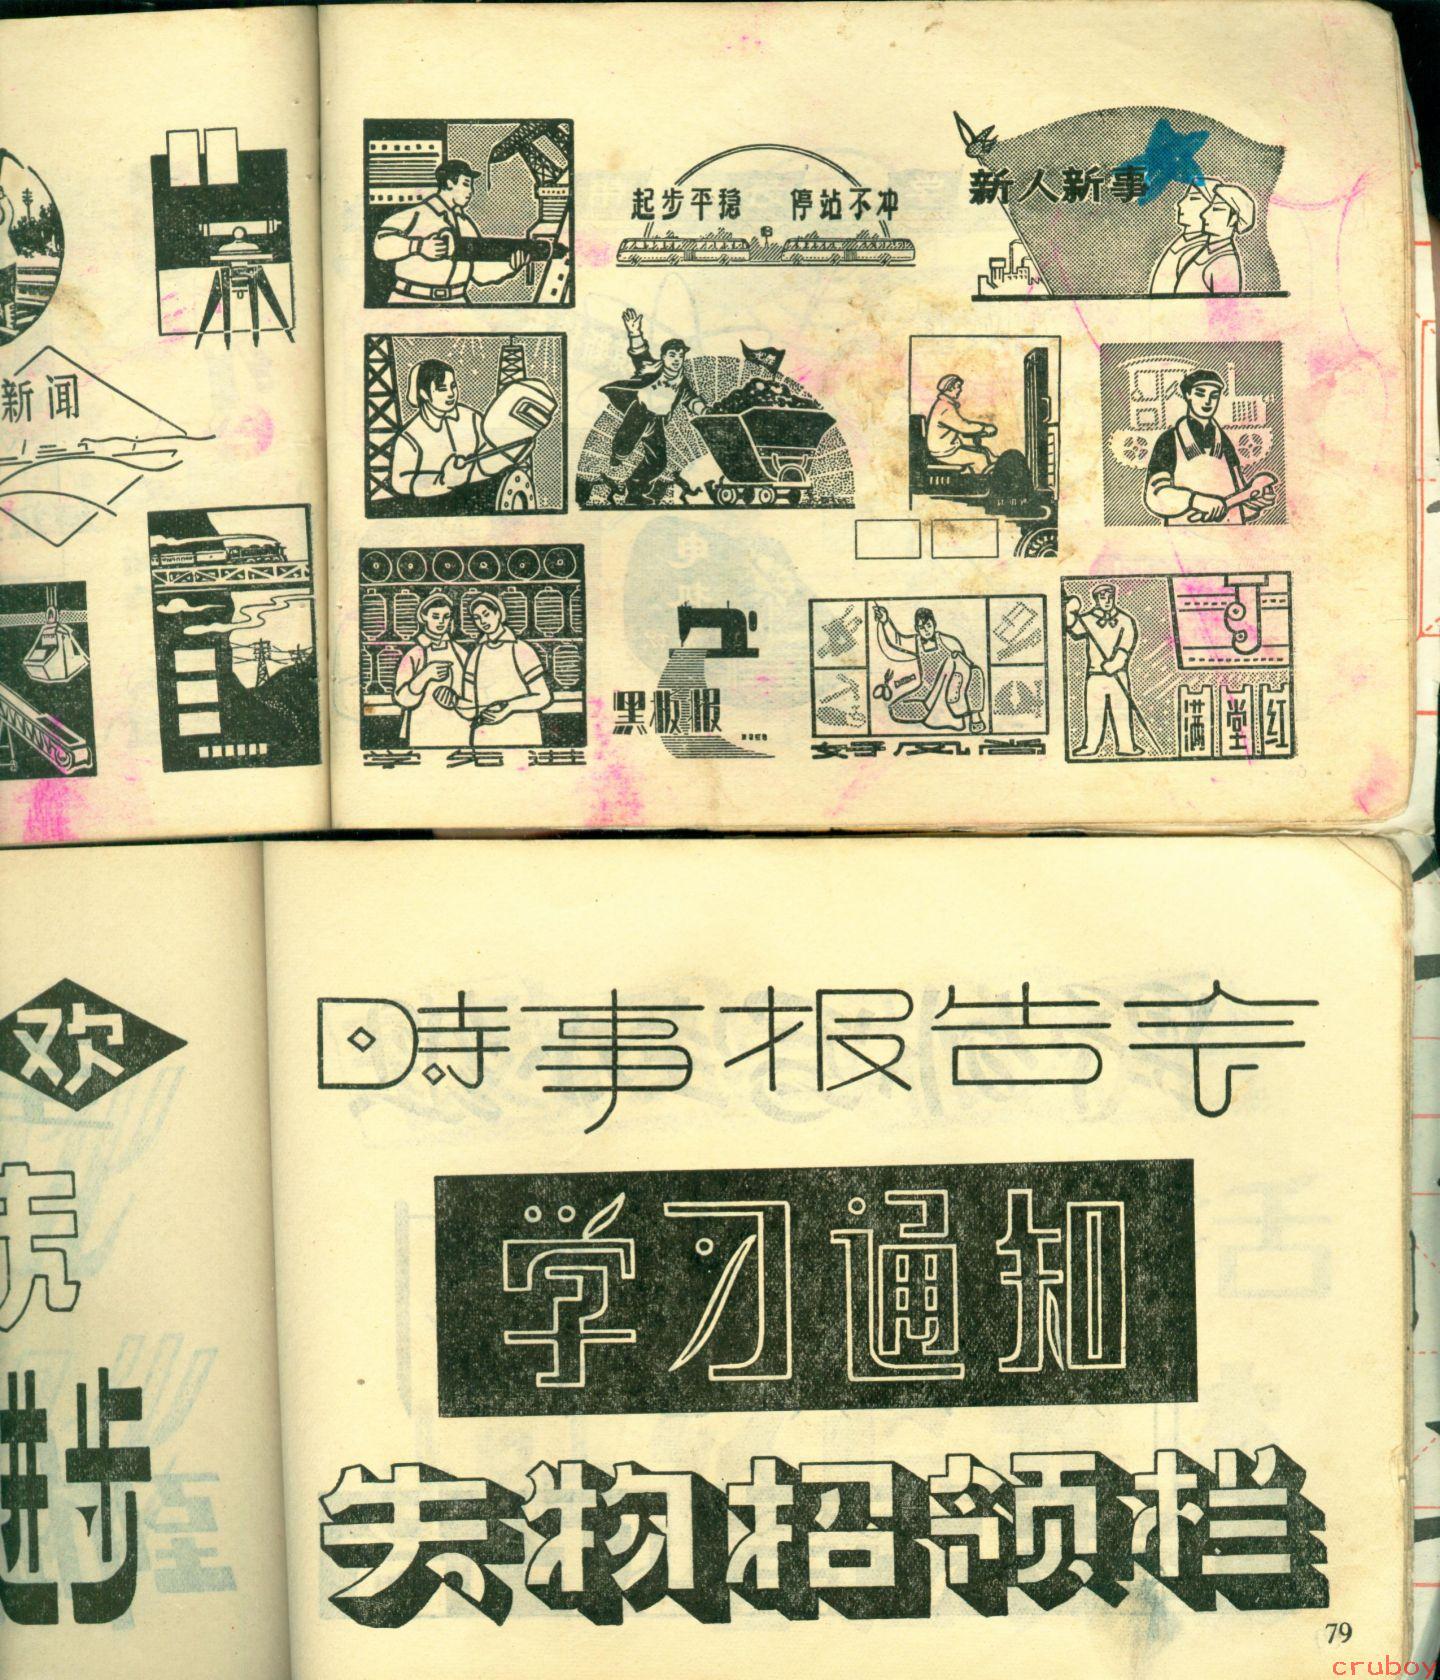 起步平稳 停站不冲
新人新事
新闻
黑板报
学先进
好风尚
满堂红
欢
時事报告会
学习通知
进步
失物招领栏
79
cruboy